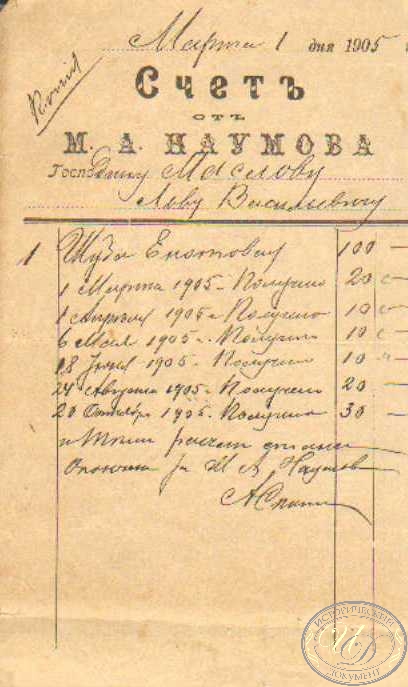 Копія
Марта 1 дня 1905
Счетъ
отъ
М. А. НАУМОВА
Господину Маслову
Льву Васильевичу
1 Шуба Енотовая 100 —
1 Марта 1905 - Получено 20
1 Апреля 1905 - Получено 10
6 Мая 1905 - Получено 10
18 Июня 1905 - Получено 10
24 Августа 1905 - Получено 20 —
20 Октября 1905 - Получено 30 —
и
за М А Наумов
ИСТОРИЧЕСКИЙ
ИД
ДОКУМЕНТ